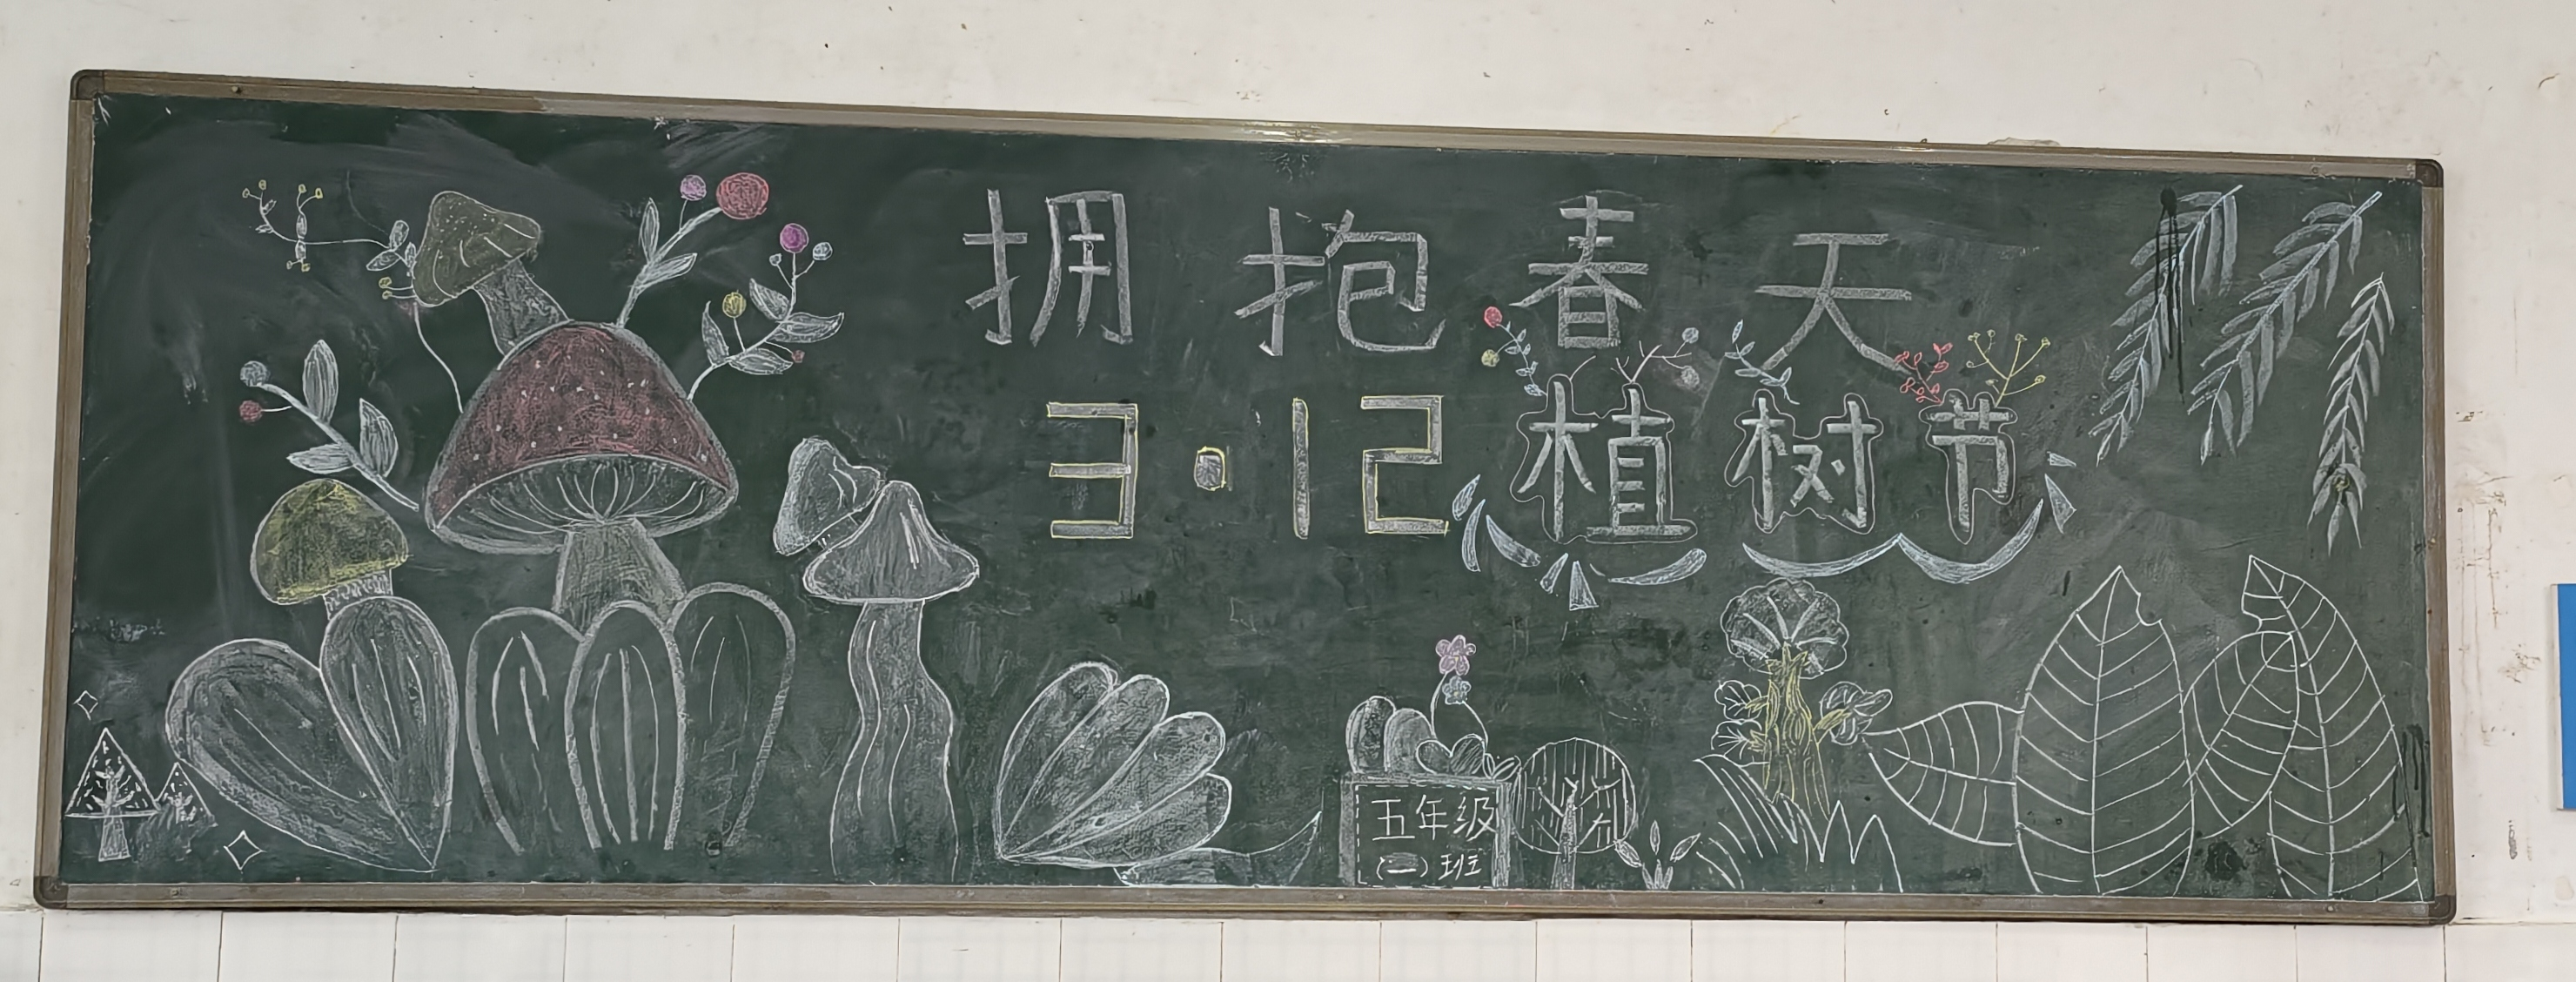 拥抱春天
3·12植树节
五年级
(一)班